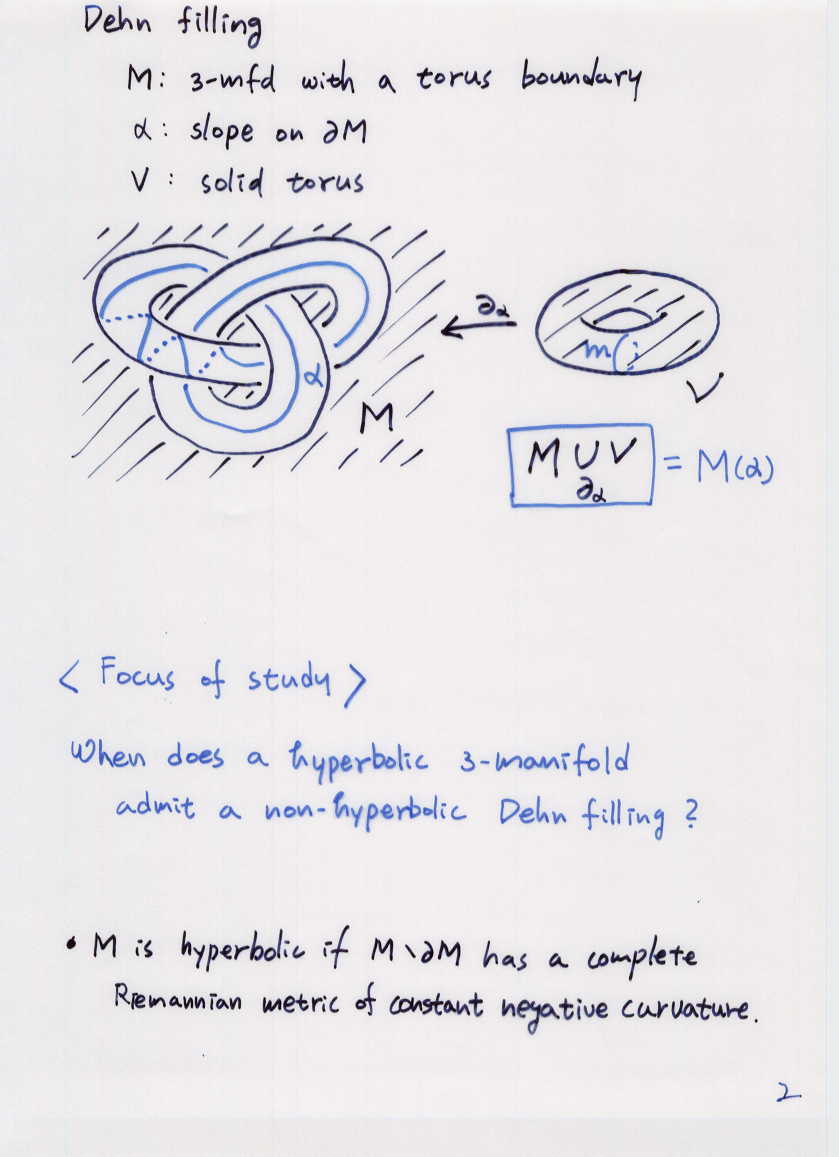 Dehn filling
M: 3-mfd with a torus boundary
α: slope on ∂M
V: solid torus
∂α
m
α
M
V
M ∪ V = M(α)
∂α
< Focus of study >
When does a hyperbolic 3-manifold
admit a non-hyperbolic Dehn filling?
• M is hyperbolic if M∖∂M has a complete
Riemannian metric of constant negative curvature.
2